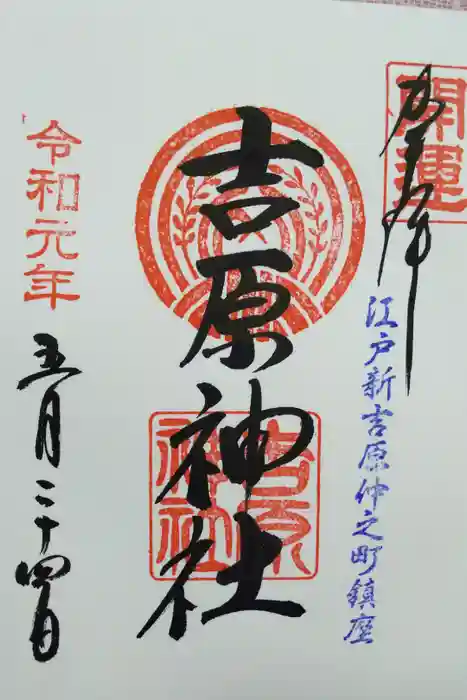 開運
奉拝
江戸新吉原仲之町鎮座
吉原神社
吉原神社
令和元年
五月二十四日